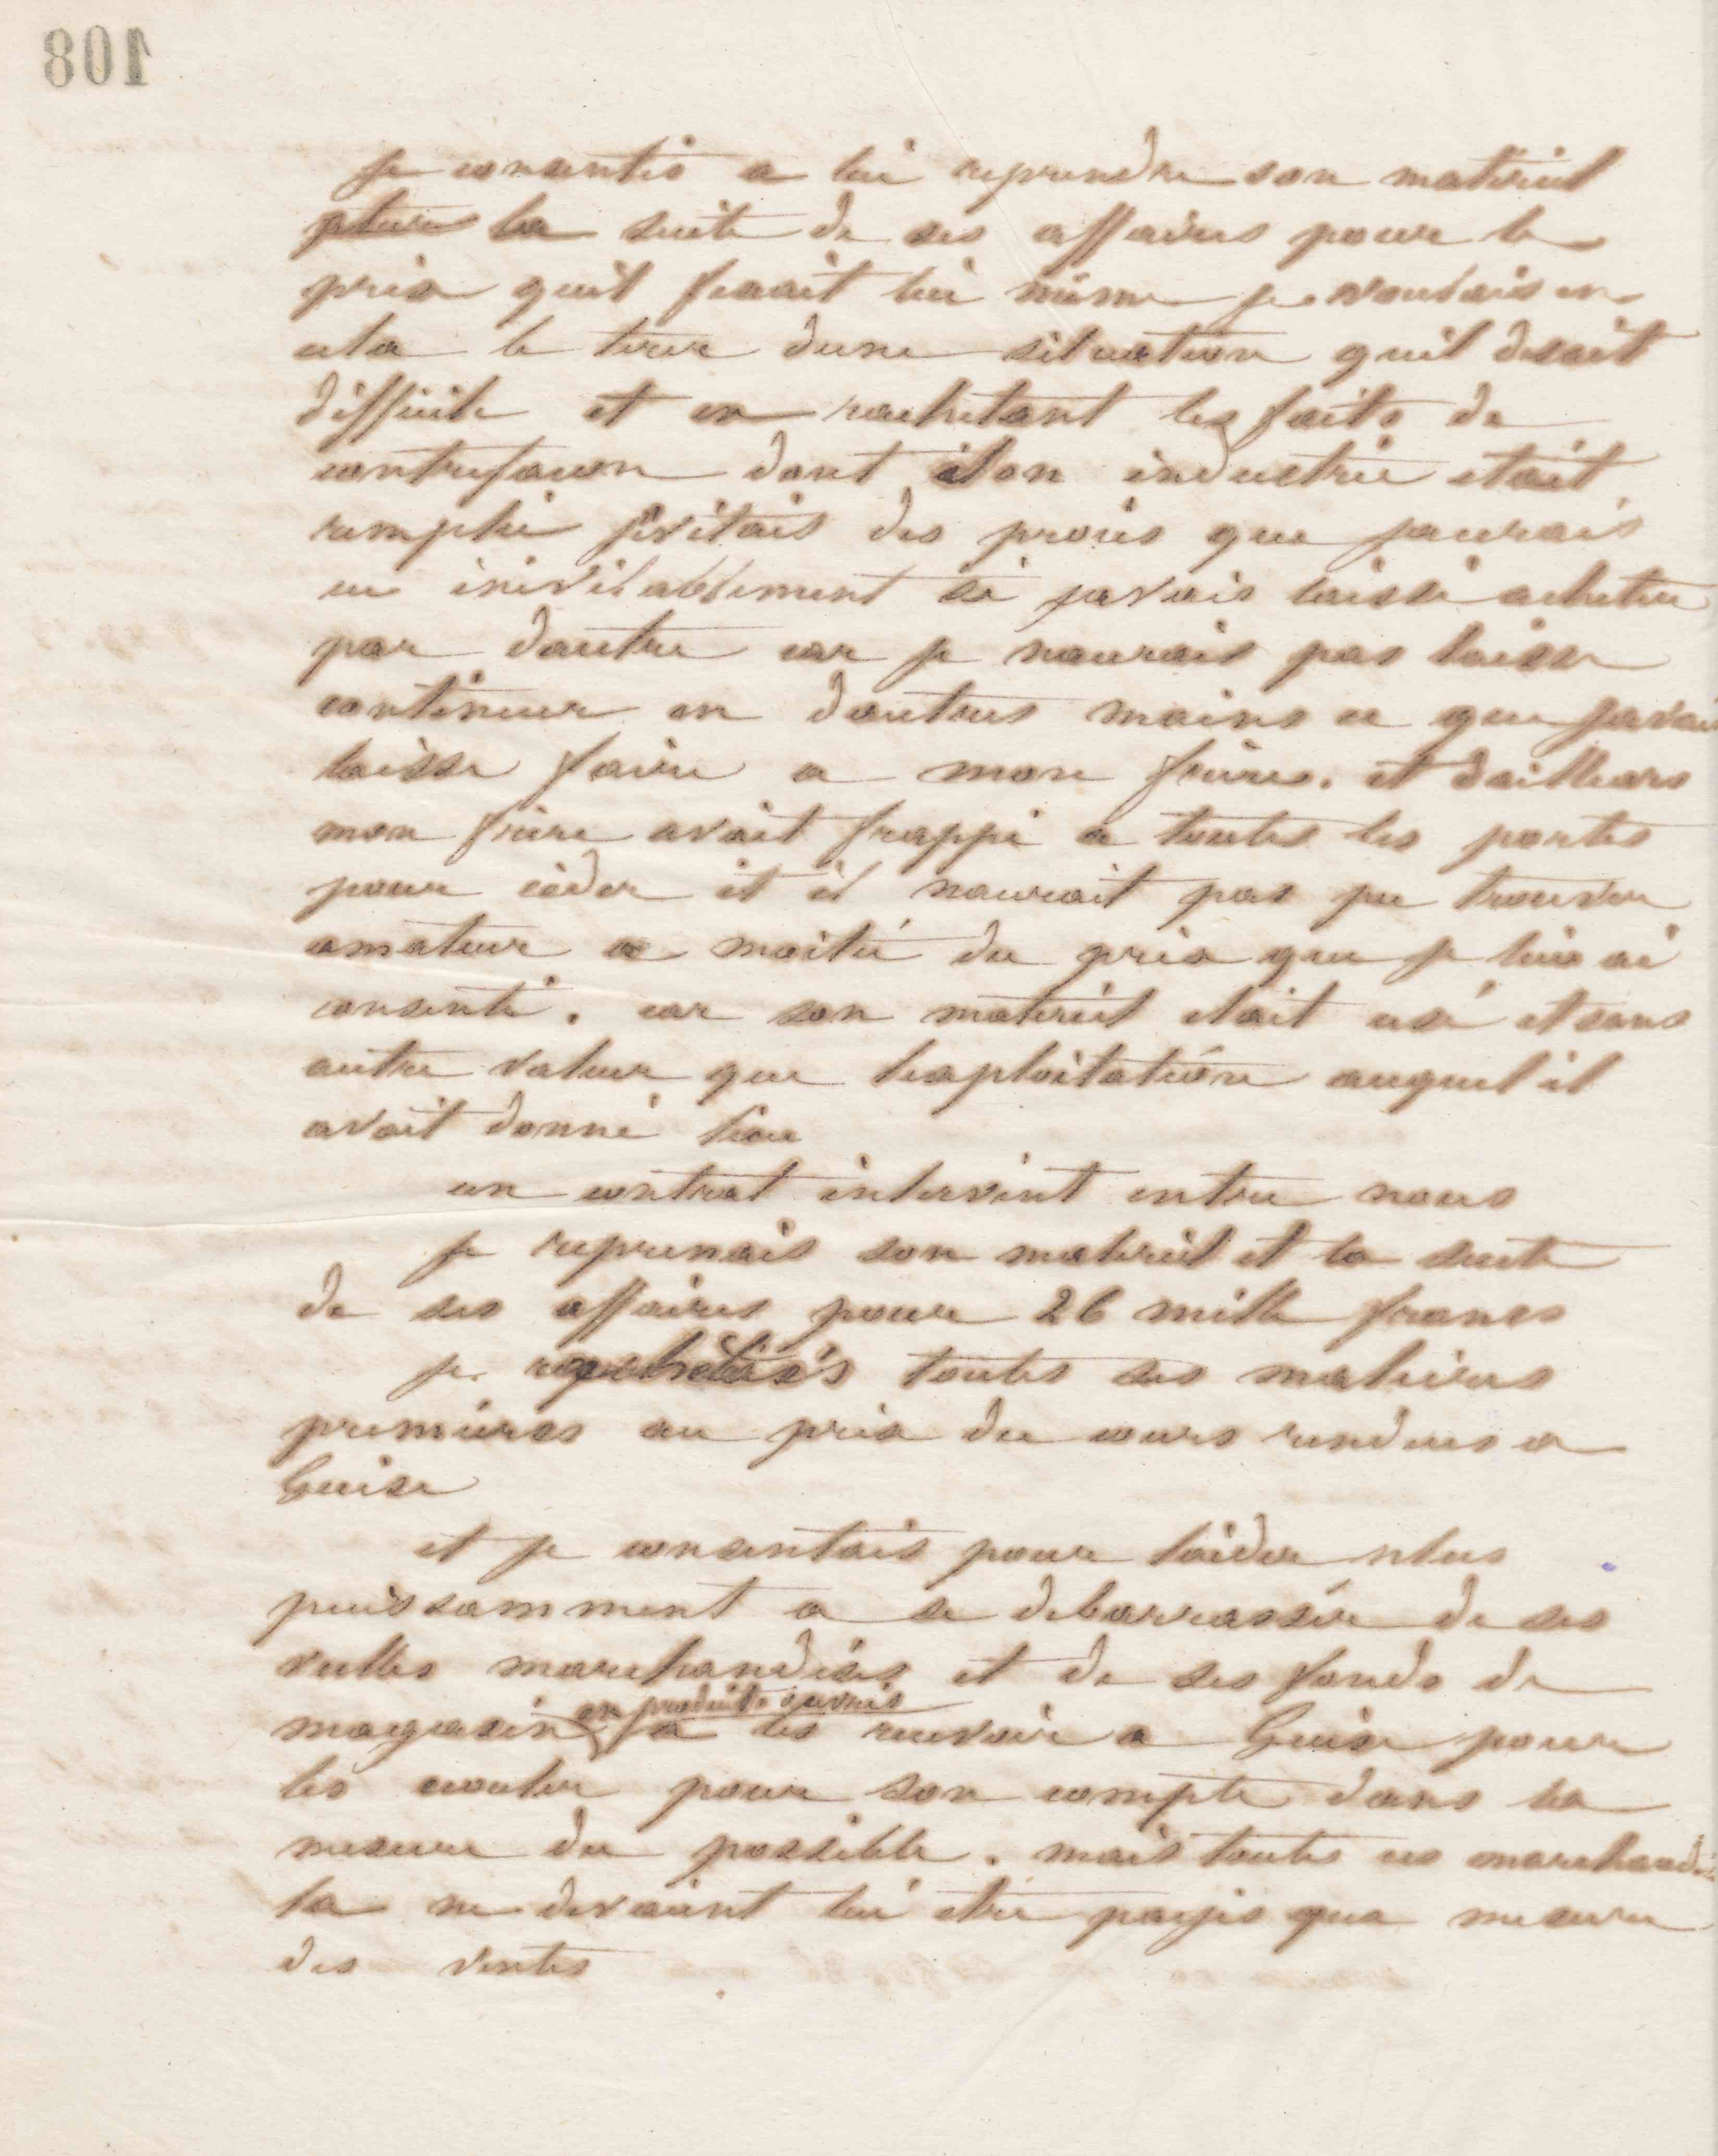 108
je consentis a lui reprendre son materiel
la suite de ses affaires pour le
prix quil fixait lui même je voulais en
cela le tirer dune situation quil disait
difficile et en rachetant les faits de
contrefacon dont son industrie etait
remplie jévitais des procès que jaurais
eu inévitablement si javais laissé acheter
par dautre car je naurais pas laisse
continuer en dautres mains ce que javais
laisse faire a mon frère. et dailleurs
mon frère avait frappé a toutes les portes
pour céder et il naurait pas pu trouver
amateur a moitié du prix que je lui ai
consenti. car son matériel etait usé et sans
autre valeur que lexploitation auquel il
avait donné lieu
un contrat intervint entre nous
je reprenais son materiel et la suite
de ses affaires pour 26 mille francs
je toutes ses matieres
premières au prix du cours rendues a
Guise
et je consentais pour laider plus
puissamment a se debarrasser de ses
vielles marchandises et de ses fonds de
en produits ouvrés
magasin a les recevoir a Guise pour
les ecouler pour son compte dans la
mesure du possible. mais toutes ces marchandis
la ne devaient lui etre payés qua mesure
des ventes